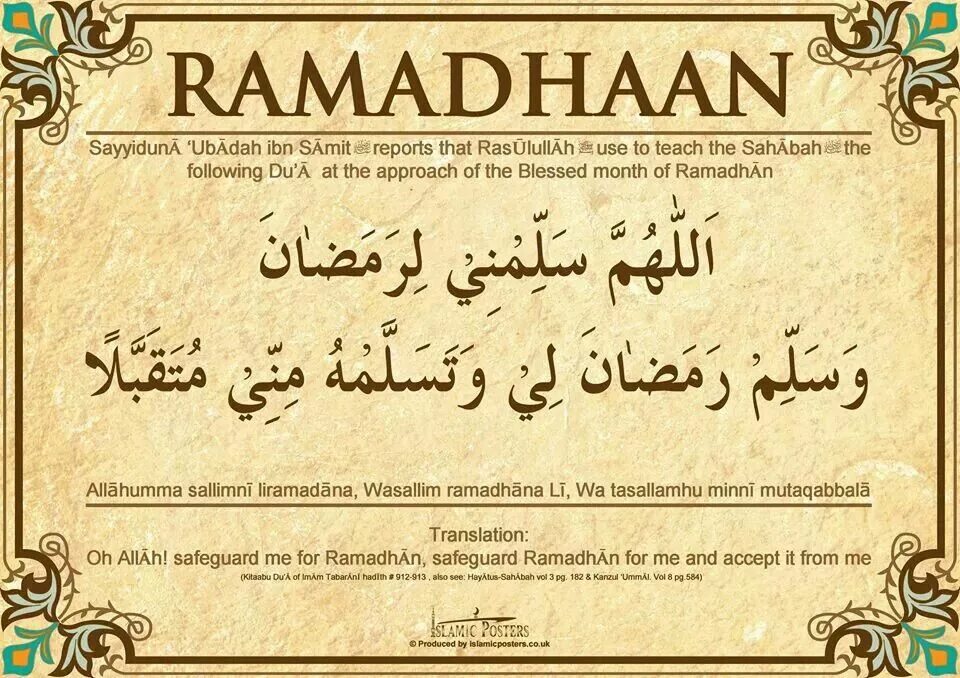 RAMADHAAN
SayyidunĀ ‘UbĀdah ibn SĀmit reports that RasŪlullĀh ﷺ use to teach the SahĀbah the
following Du’Ā at the approach of the Blessed month of RamadhĀn
اَللّٰهُمَّ سَلِّمْنِيْ لِرَمَضَانَ
وَسَلِّمْ رَمَضَانَ لِيْ وَتَسَلَّمْهُ مِنِّيْ مُتَقَبَّلًا
Allāhumma sallimnī liramadāna, Wasallim ramadhāna Lī, Wa tasallamhu minnī mutaqabbalā
Translation:
Oh AllĀh! safeguard me for RamadhĀn, safeguard RamadhĀn for me and accept it from me
(Kitaabu Du’Ā of ImĀm TabarĀnI hadIth # 912-913 , also see: HayĀtus-SahĀbah vol 3 pg. 182 & Kanzul ‘UmmĀl. Vol 8 pg.584)
ISLAMIC POSTERS
© Produced by islamicposters.co.uk